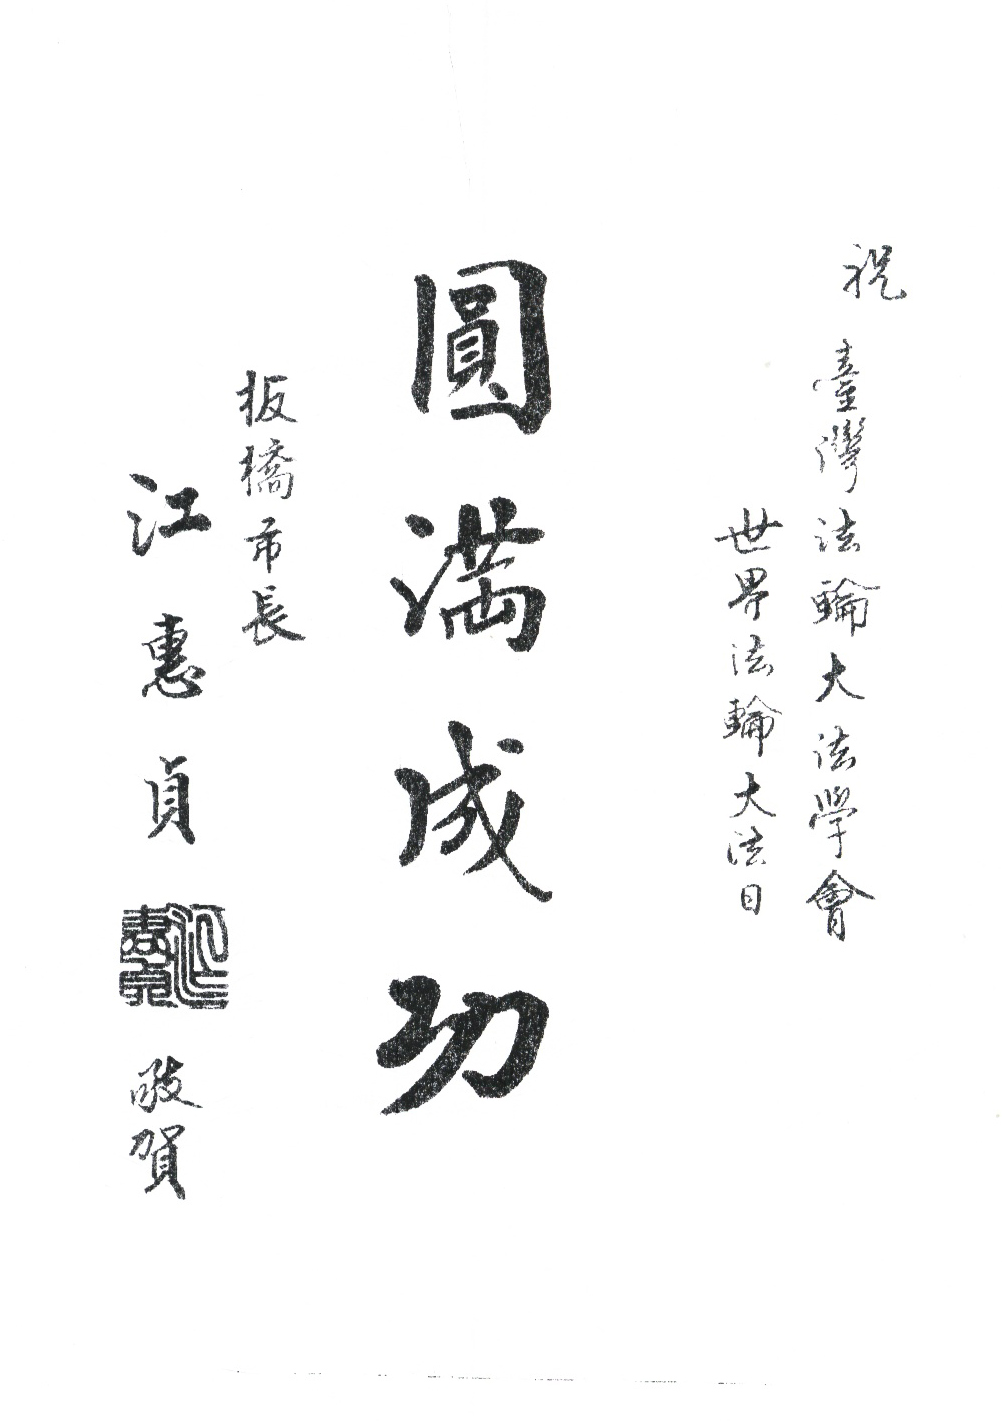 祝
臺灣法輪大法學會
世界法輪大法日
圓滿成功
板橋市長
江惠貞
江惠貞
敬賀